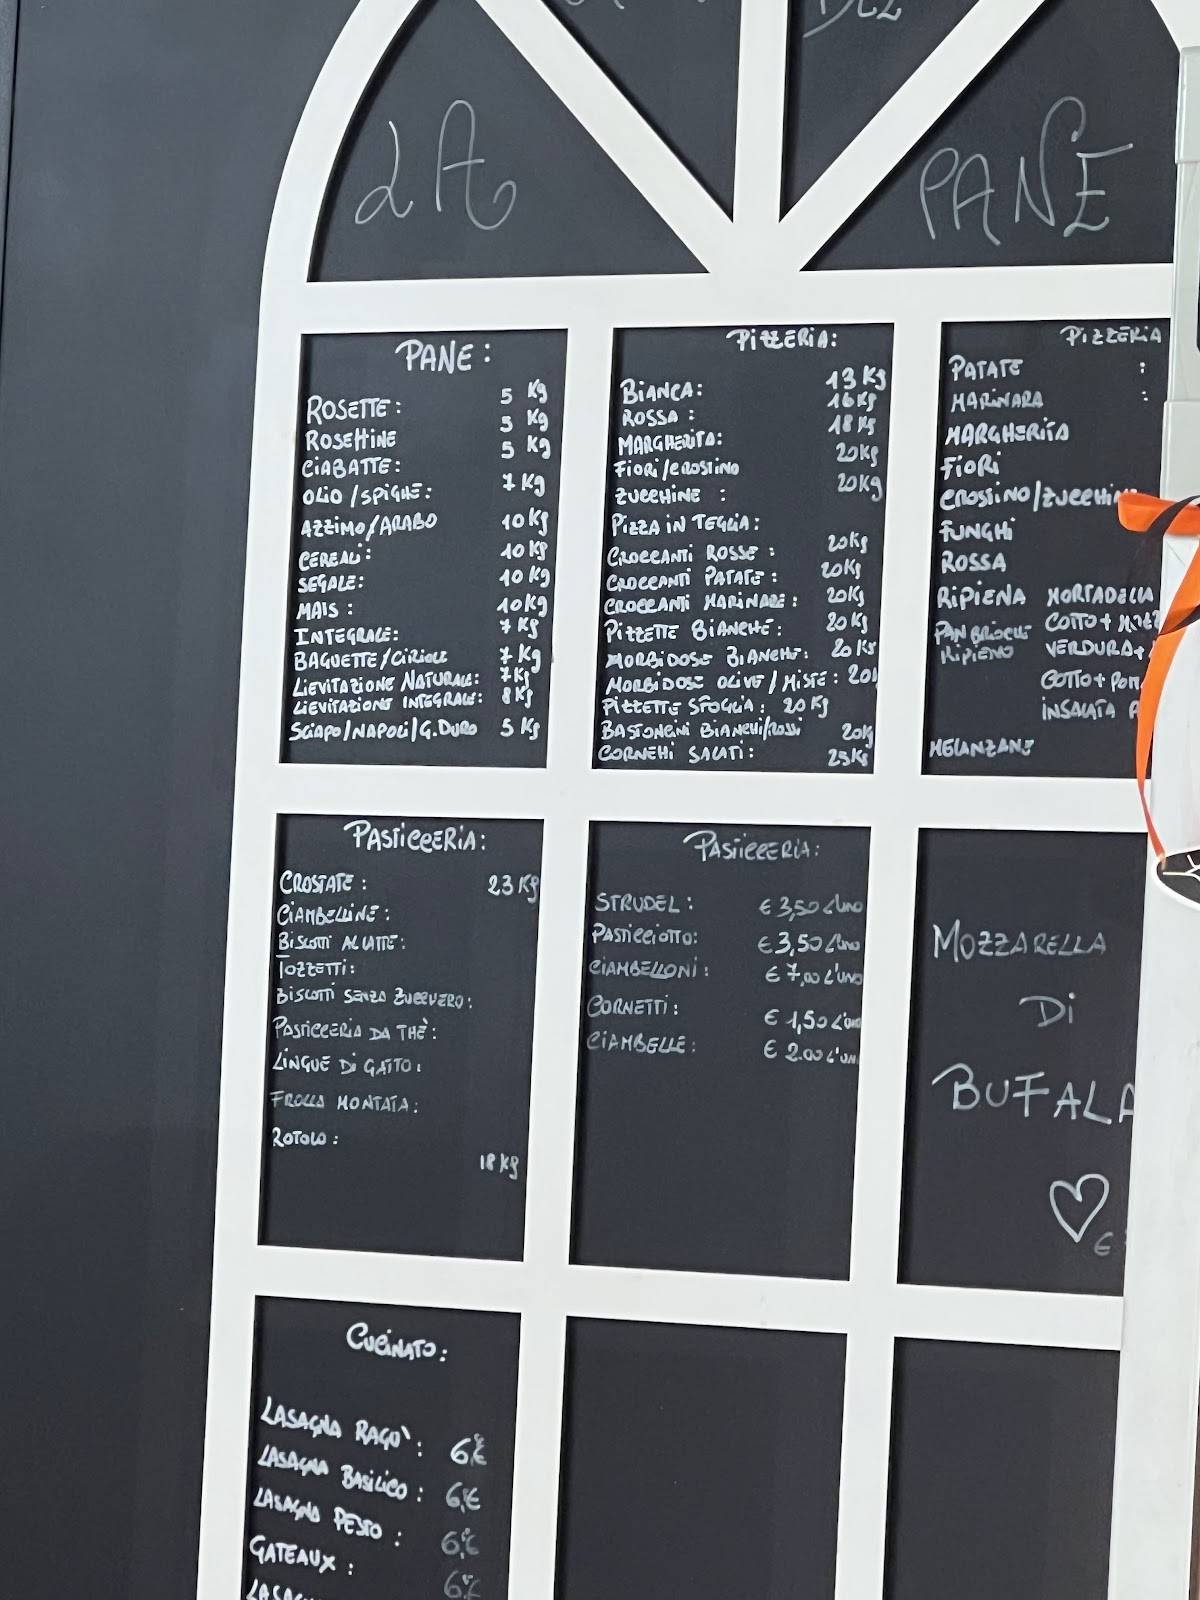 DEL
LA
PANE
PANE:
ROSETTE: 5 Kg
ROSETTINE 5 Kg
CIABATTE: 5 Kg
OLIO/SPIGHE: 7 Kg
AZZIMO/ARABO 10 Kg
CEREALI: 10 Kg
SEGALE: 10 Kg
MAIS: 10 Kg
INTEGRALE: 7 Kg
BAGUETTE/CIRIOLE 7 Kg
LIEVITAZIONE NATURALE: 7 Kg
LIEVITAZIONE INTEGRALE: 8 Kg
SCIAPO/NAPOLI/G.DURO 5 Kg
PIZZERIA:
BIANCA: 13 Kg
ROSSA: 16 Kg
MARGHERITA: 18 Kg
FIORI/CROSTINO 20 Kg
ZUCCHINE: 20 Kg
PIZZA IN TEGLIA:
CROCCANTI ROSSE: 20 Kg
CROCCANTI PATATE: 20 Kg
CROCCANTI MARINARE: 20 Kg
PIZZETTE BIANCHE: 20 Kg
MORBIDOSE BIANCHE: 20 Kg
MORBIDOSE OLIVE/MISTE: 20
PIZZETTE SFOGLIA: 20 Kg
BASTONCINI BIANCHI/ROSSI 20 Kg
CORNETTI SALATI: 25 Kg
PIZZERIA
PATATE :
MARINARA :
MARGHERITA
FIORI
CROSTINO/ZUCCHIN
FUNGHI
ROSSA
RIPIENA MORTADELLA
PAN BRIOCHE COTTO +
RIPIENO VERDURA+
COTTO + POM
INSALATA P
MELANZANE
PASTICCERIA:
CROSTATE: 23 Kg
CIAMBELLINE:
BISCOTTI AL LATTE:
TOZZETTI:
BISCOTTI SENZA ZUCCHERO:
PASTICCERIA DA THÈ:
LINGUE DI GATTO:
FROLLA MONTATA:
ROTOLO:
18 Kg
PASTICCERIA:
STRUDEL: € 3,50 L'UNO
PASTICCIOTTO: € 3,50 L'UNO
CIAMBELLONI: € 7,00 L'UNO
CORNETTI: € 1,50 L'UNO
CIAMBELLE: € 2.00 L'UN
MOZZARELLA
DI
BUFALA
€
CUCINATO:
LASAGNA RAGÙ: 6,€
LASAGNA BASILICO: 6,€
LASAGNA PESTO: 6,€
GATEAUX: 6,€
LASAG